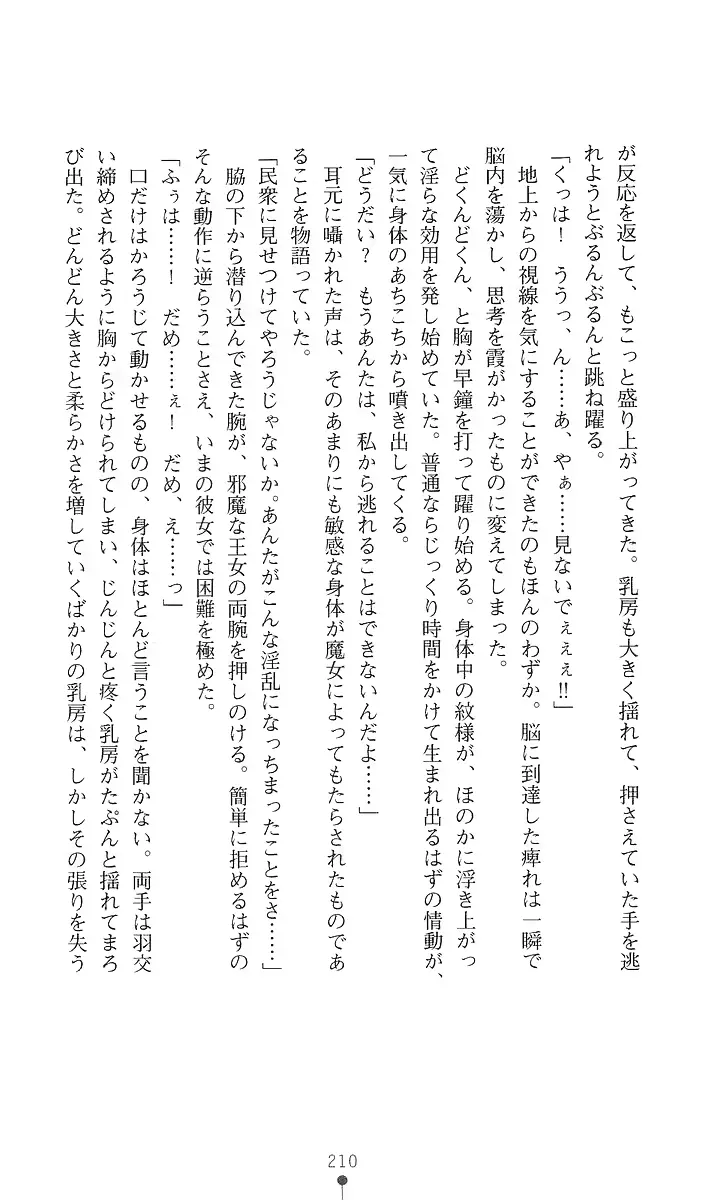 が反応を返して、もこっと盛り上がってきた。乳房も大きく揺れて、押さえていた手を逃
れようとぶるんぶるんと跳ね躍る。
「くっは！　ううっ、ん……あ、やぁ……見ないでぇぇぇ!!」
　地上からの視線を気にすることができたのもほんのわずか。脳に到達した痺れは一瞬で
脳内を蕩かし、思考を霞がかったものに変えてしまった。
　どくんどくん、と胸が早鐘を打って躍り始める。身体中の紋様が、ほのかに浮き上がっ
て淫らな効用を発し始めていた。普通ならじっくり時間をかけて生まれ出るはずの情動が、
一気に身体のあちこちから噴き出してくる。
「どうだい？　もうあんたは、私から逃れることはできないんだよ……」
　耳元に囁かれた声は、そのあまりにも敏感な身体が魔女によってもたらされたものであ
ることを物語っていた。
「民衆に見せつけてやろうじゃないか。あんたがこんな淫乱になっちまったことをさ……」
　脇の下から潜り込んできた腕が、邪魔な王女の両腕を押しのける。簡単に拒めるはずの
そんな動作に逆らうことさえ、いまの彼女では困難を極めた。
「ふぅは……！　だめ……ぇ！　だめ、え……っ」
　口だけはかろうじて動かせるものの、身体はほとんど言うことを聞かない。両手は羽交
い締めされるように胸からどけられてしまい、じんじんと疼く乳房がたぷんと揺れてまろ
び出た。どんどん大きさと柔らかさを増していくばかりの乳房は、しかしその張りを失う
210